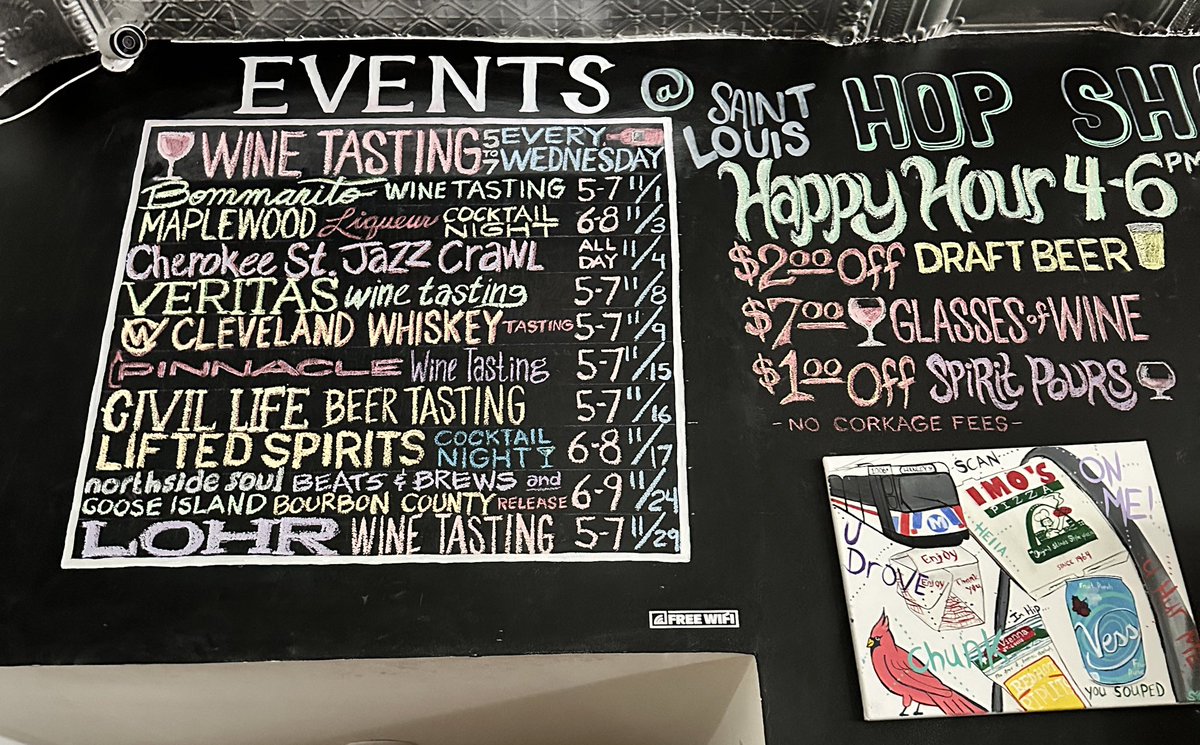 EVENTS @ SAINT LOUIS HOP
WINE TASTING 5 TO 7 EVERY WEDNESDAY
Bommarito WINE TASTING 5-7 11/1
MAPLEWOOD Liqueur COCKTAIL NIGHT 6-8 11/3
Cherokee St. Jazz Crawl ALL DAY 11/4
VERITAS wine tasting 5-7 11/8
CLEVELAND WHISKEY TASTING 5-7 11/9
PINNACLE Wine Tasting 5-7 11/15
CIVIL LIFE BEER TASTING 5-7 11/16
LIFTED SPIRITS COCKTAIL NIGHT 6-8 11/17
northside soul BEATS & BREWS and
GOOSE ISLAND BOURBON COUNTY RELEASE 6-9 11/24
LOHR WINE TASTING 5-7 11/29
Happy Hour 4-6 PM
$2.00 Off DRAFT BEER
$7.00 GLASSES of WINE
$1.00 Off SPiRit PoURS
- NO CORKAGE FEES -
@FREE WIFI
SCAN
ON ME!
IMO'S
PIZZA
HELLA
SINCE 1964
M
U DROVE
Enjoy
Enjoy
Thank you
In Hip
Vienna
Chunk
RED HOT
Fruit Punch
Vess
YOU SOUPED